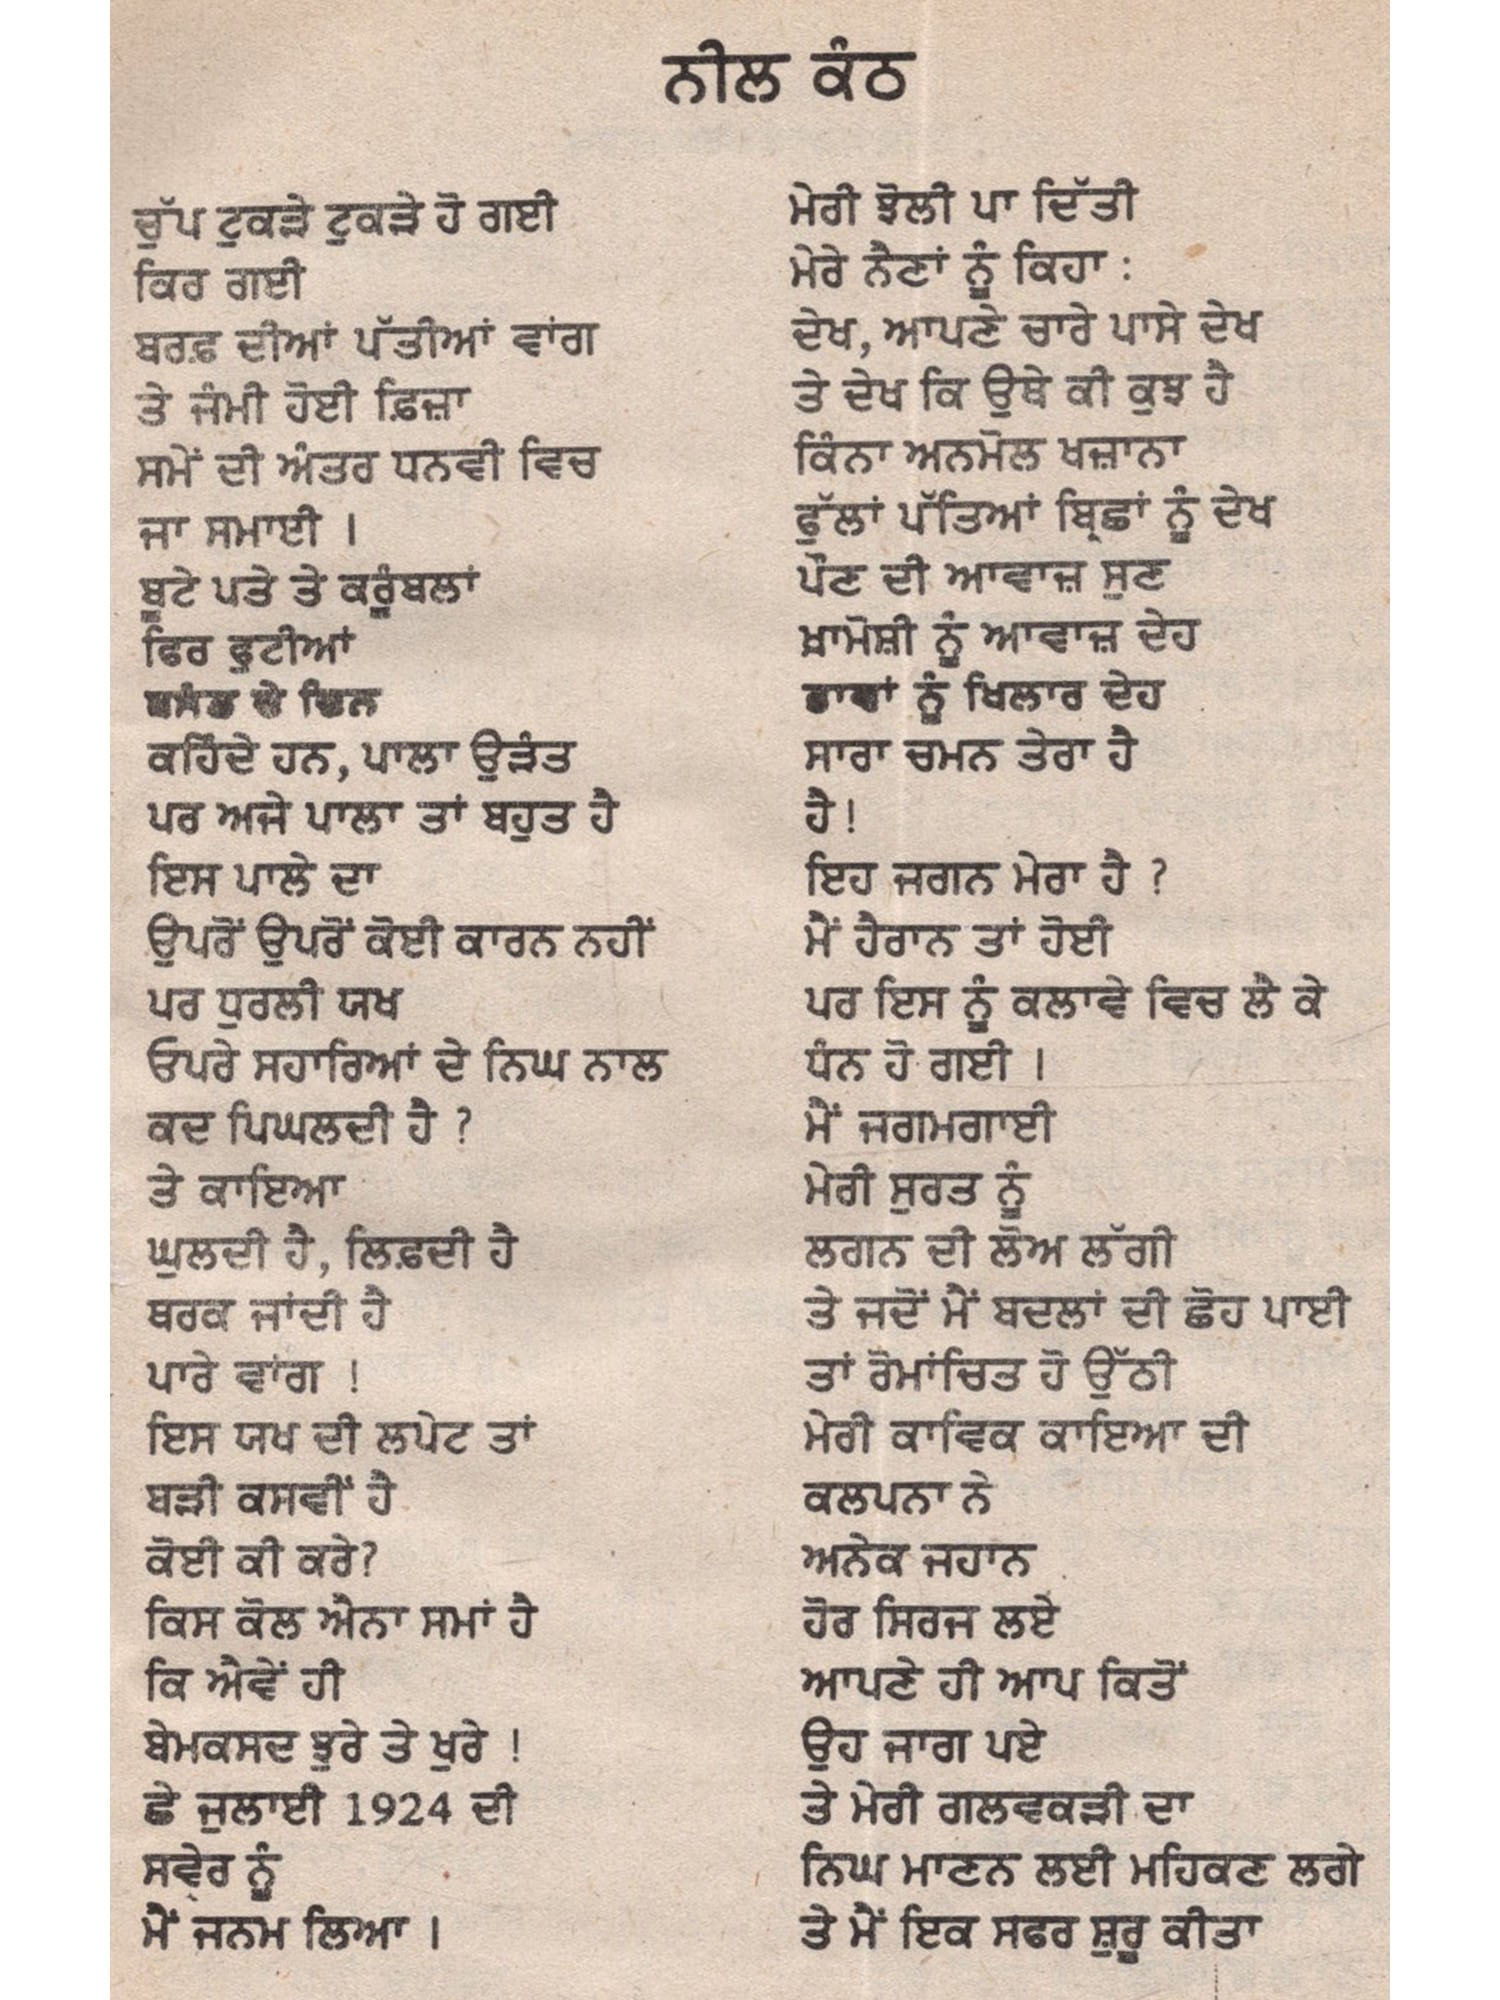 ਨੀਲ ਕੰਠ
ਚੁੱਪ ਟੁਕੜੇ ਟੁਕੜੇ ਹੋ ਗਈ
ਕਿਰ ਗਈ
ਬਰਫ਼ ਦੀਆਂ ਪੱਤੀਆਂ ਵਾਂਗ
ਤੇ ਜੰਮੀ ਹੋਈ ਫ਼ਿਜ਼ਾ
ਸਮੇਂ ਦੀ ਅੰਤਰ ਧਨਵੀ ਵਿਚ
ਜਾ ਸਮਾਈ ।
ਬੂਟੇ ਪਤੇ ਤੇ ਕਰੂੰਬਲਾਂ
ਫਿਰ ਫੁਟੀਆਂ
ਬਸੰਤ ਦੇ ਦਿਨ
ਕਹਿੰਦੇ ਹਨ, ਪਾਲਾ ਉੜੰਤ
ਪਰ ਅਜੇ ਪਾਲਾ ਤਾਂ ਬਹੁਤ ਹੈ
ਇਸ ਪਾਲੇ ਦਾ
ਉਪਰੋਂ ਉਪਰੋਂ ਕੋਈ ਕਾਰਨ ਨਹੀਂ
ਪਰ ਧੁਰਲੀ ਯਖ
ਓਪਰੇ ਸਹਾਰਿਆਂ ਦੇ ਨਿਘ ਨਾਲ
ਕਦ ਪਿਘਲਦੀ ਹੈ ?
ਤੇ ਕਾਇਆ
ਘੁਲਦੀ ਹੈ, ਲਿਫ਼ਦੀ ਹੈ
ਥਰਕ ਜਾਂਦੀ ਹੈ
ਪਾਰੇ ਵਾਂਗ !
ਇਸ ਯਖ ਦੀ ਲਪੇਟ ਤਾਂ
ਬੜੀ ਕਸਵੀਂ ਹੈ
ਕੋਈ ਕੀ ਕਰੇ?
ਕਿਸ ਕੋਲ ਐਨਾ ਸਮਾਂ ਹੈ
ਕਿ ਐਵੇਂ ਹੀ
ਬੇਮਕਸਦ ਝੁਰੇ ਤੇ ਖੁਰੇ !
ਛੇ ਜੁਲਾਈ 1924 ਦੀ
ਸਵੇਰ ਨੂੰ
ਮੈਂ ਜਨਮ ਲਿਆ ।
ਮੇਰੀ ਝੋਲੀ ਪਾ ਦਿੱਤੀ
ਮੇਰੇ ਨੈਣਾਂ ਨੂੰ ਕਿਹਾ :
ਦੇਖ, ਆਪਣੇ ਚਾਰੇ ਪਾਸੇ ਦੇਖ
ਤੇ ਦੇਖ ਕਿ ਉਥੇ ਕੀ ਕੁਝ ਹੈ
ਕਿੰਨਾ ਅਨਮੋਲ ਖਜ਼ਾਨਾ
ਫੁੱਲਾਂ ਪੱਤਿਆਂ ਬ੍ਰਿਛਾਂ ਨੂੰ ਦੇਖ
ਪੌਣ ਦੀ ਆਵਾਜ਼ ਸੁਣ
ਖ਼ਾਮੋਸ਼ੀ ਨੂੰ ਆਵਾਜ਼ ਦੇਹ
ਨੂੰ ਖਿਲਾਰ ਦੇਹ
ਸਾਰਾ ਚਮਨ ਤੇਰਾ ਹੈ
ਹੈ!
ਇਹ ਜਗਨ ਮੇਰਾ ਹੈ ?
ਮੈਂ ਹੈਰਾਨ ਤਾਂ ਹੋਈ
ਪਰ ਇਸ ਨੂੰ ਕਲਾਵੇ ਵਿਚ ਲੈ ਕੇ
ਧੰਨ ਹੋ ਗਈ ।
ਮੈਂ ਜਗਮਗਾਈ
ਮੇਰੀ ਸੁਰਤ ਨੂੰ
ਲਗਨ ਦੀ ਲੋਅ ਲੱਗੀ
ਤੇ ਜਦੋਂ ਮੈਂ ਬਦਲਾਂ ਦੀ ਛੋਹ ਪਾਈ
ਤਾਂ ਰੋਮਾਂਚਿਤ ਹੋ ਉੱਠੀ
ਮੇਰੀ ਕਾਵਿਕ ਕਾਇਆ ਦੀ
ਕਲਪਨਾ ਨੇ
ਅਨੇਕ ਜਹਾਨ
ਹੋਰ ਸਿਰਜ ਲਏ
ਆਪਣੇ ਹੀ ਆਪ ਕਿਤੋਂ
ਉਹ ਜਾਗ ਪਏ
ਤੇ ਮੇਰੀ ਗਲਵਕੜੀ ਦਾ
ਨਿਘ ਮਾਣਨ ਲਈ ਮਹਿਕਣ ਲਗੇ
ਤੇ ਮੈਂ ਇਕ ਸਫਰ ਸ਼ੁਰੂ ਕੀਤਾ